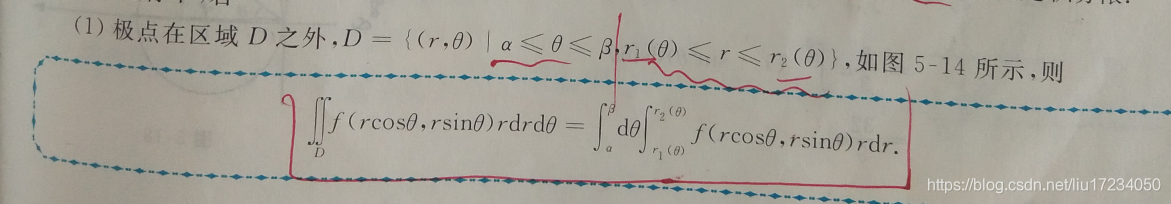 (1) 极点在区域 D 之外,D = {(r,θ) | α ≤ θ ≤ β,r₁(θ) ≤ r ≤ r₂(θ)},如图 5-14 所示,则
∬_D f(rcosθ,rsinθ)rdrdθ = ∫_α^β dθ∫_{r₁(θ)}^{r₂(θ)} f(rcosθ,rsinθ)rdr.
https://blog.csdn.net/liu17234050